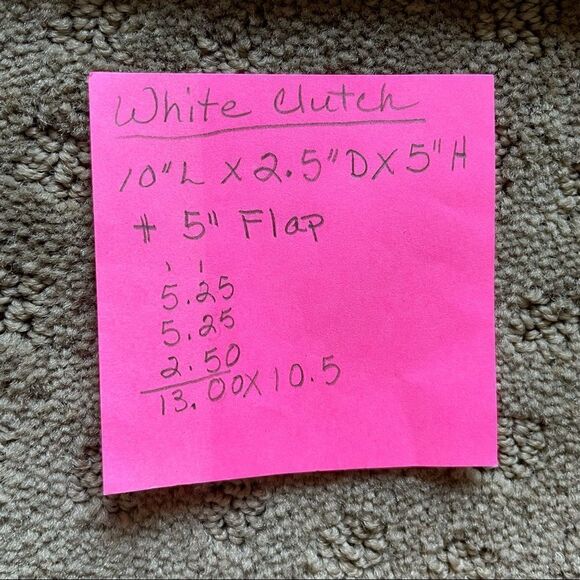 White Clutch
10"L X 2.5"D X 5"H
+ 5" Flap
1 1
5.25
5.25
2.50
13.00 X 10.5